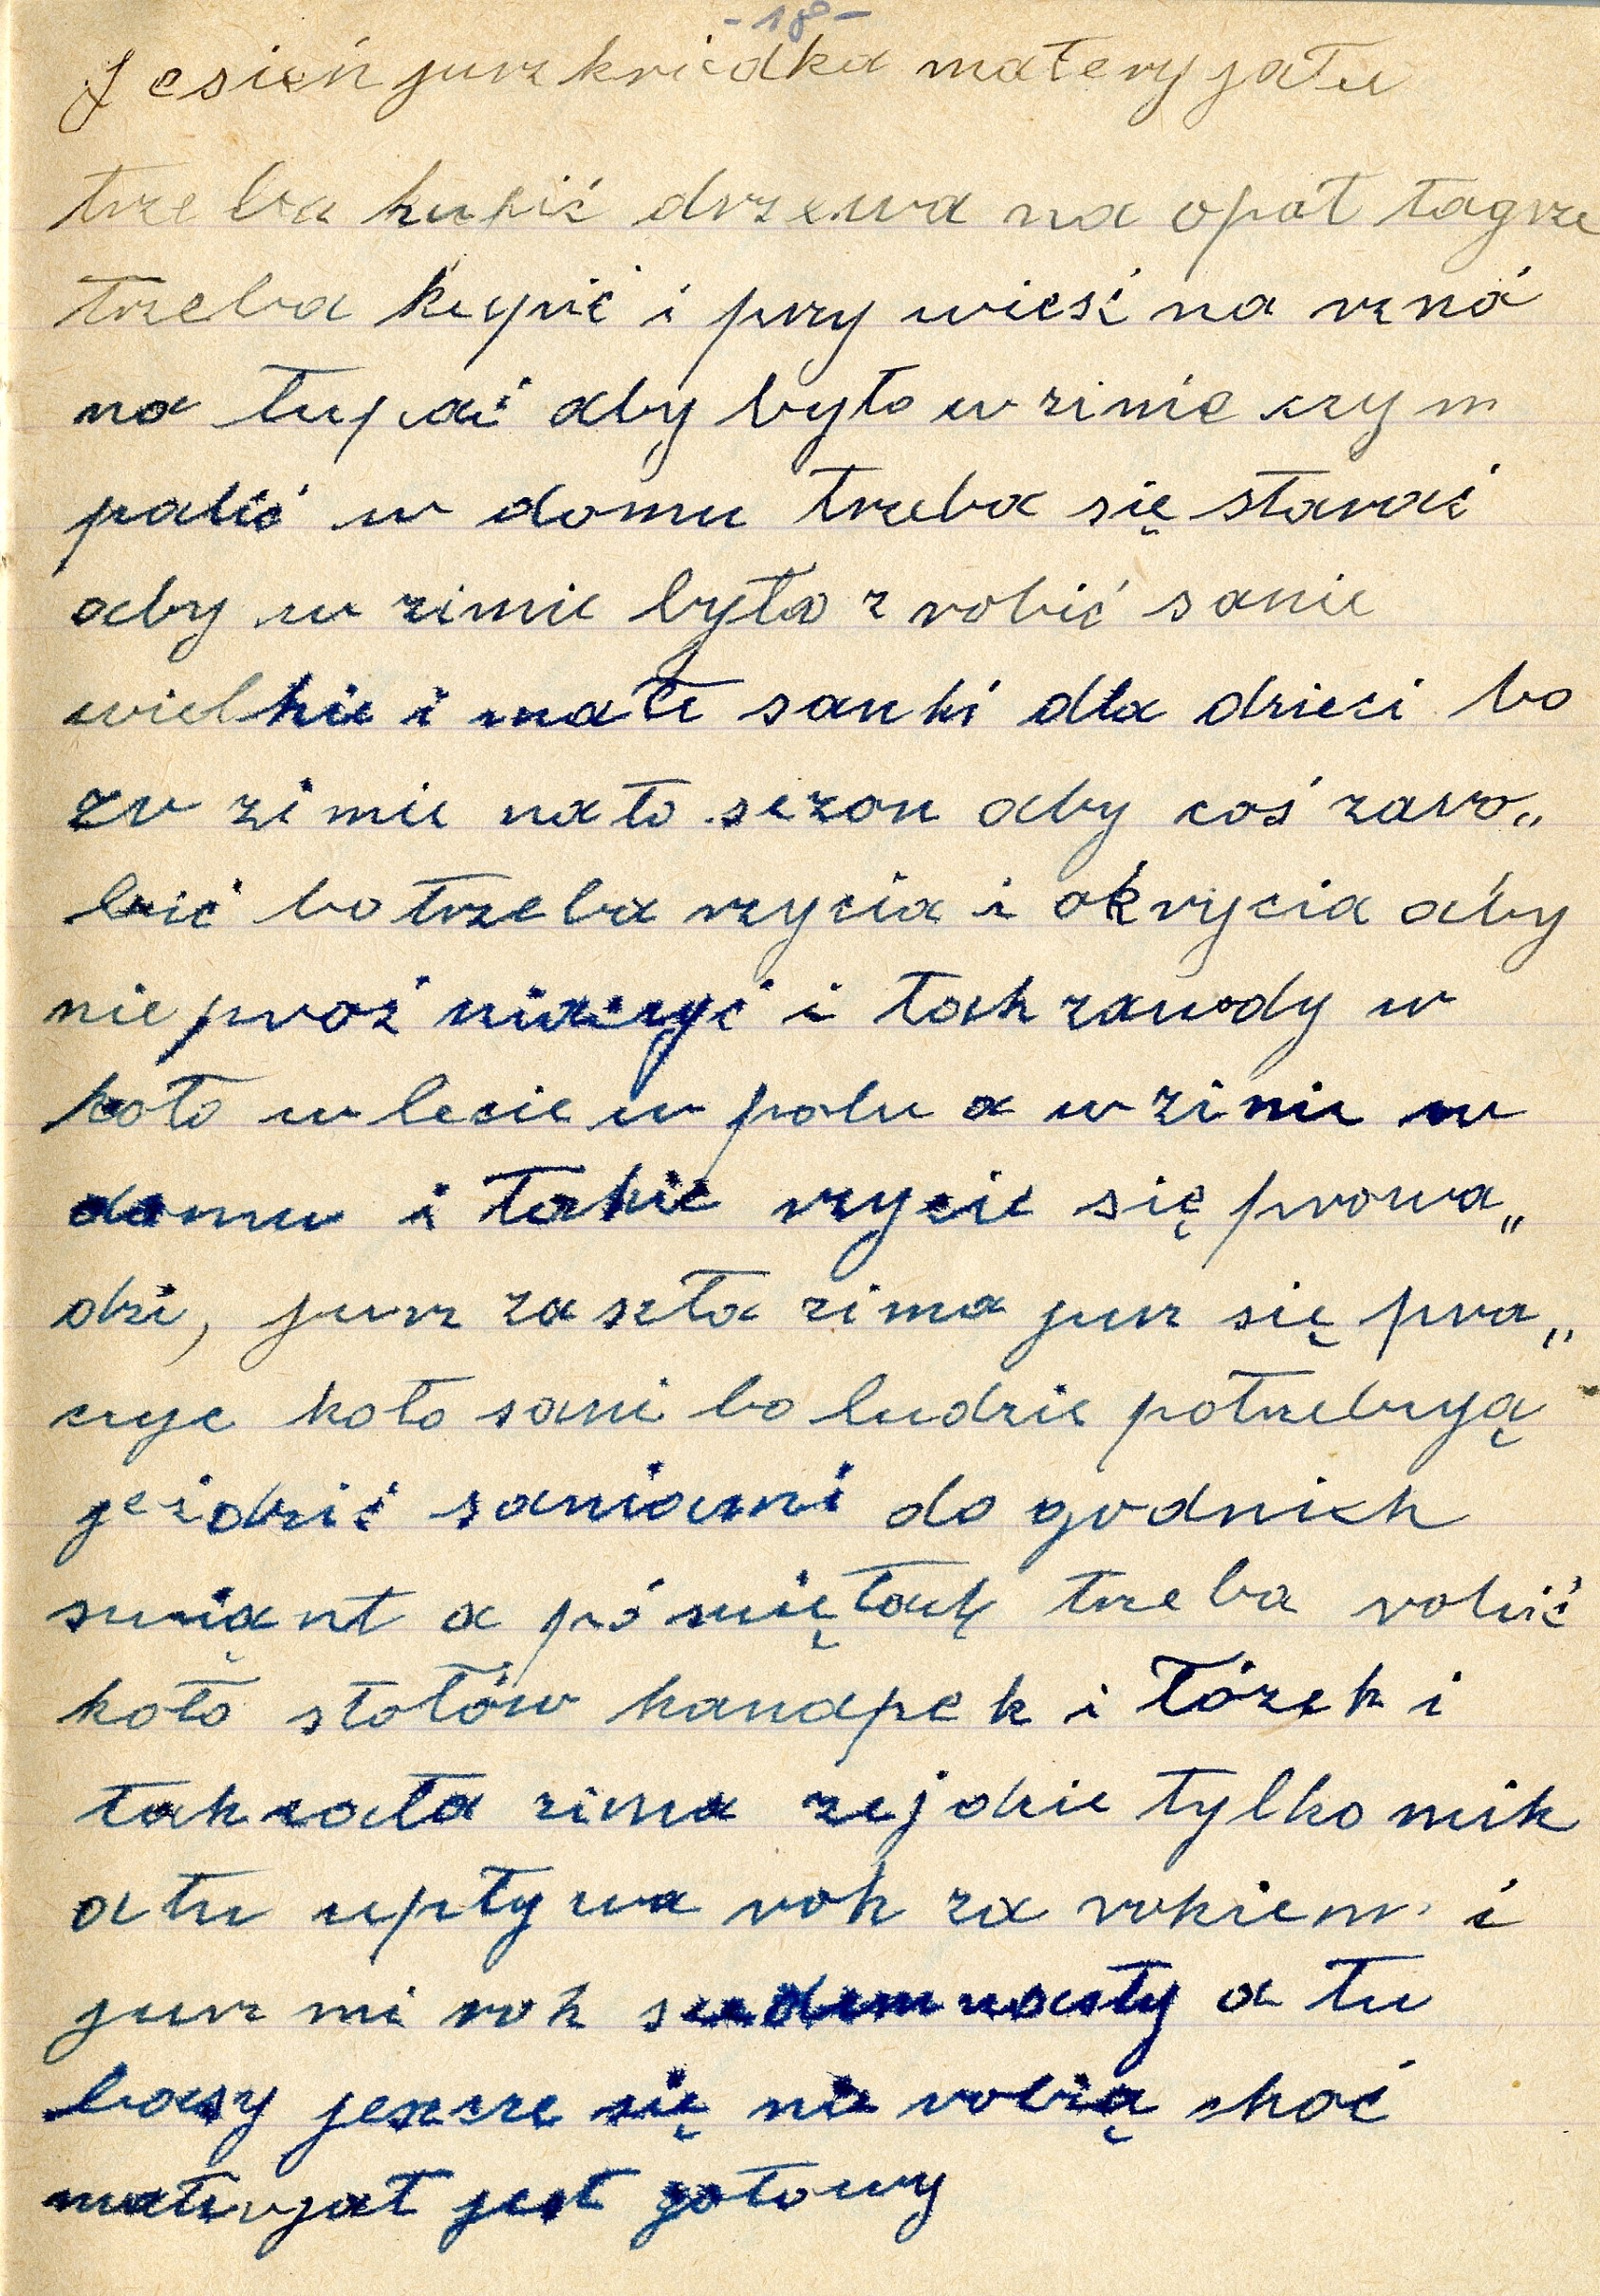 - 18 -
Jesień jurz kriedka materyjału
trzeba kupić drzewa na opał tagrze
trzeba kupić i przy wieść na rznó
na łupać aby było w zimie czym
palić w domu trzeba się starać
aby w zimie było z robić sanie
wielkie i małe sanki dla dzieci bo
w zimie na to sezon aby coś zaro„
bić bo trzeba rzycia i okrycia aby
nie proż niaczyć i tak zawody w
koło w lecie w polu a w zimie w
domu i takie rzycie się prowa„
dzi, jurz zaszła zima jurz się pra„
cyje koło sani bo ludzie potrzebyją
jeździć saniami do godnich
swiąnt a pó swiętach trzeba robić
koło stołów kanapek i łózek i
tak cała zima zejdzie tylko mik
a tu upływa rok za rokiem i
jurz mi rok siedemnasty a tu
basy jeszcze się nie robią choć
materjał jest gotowy